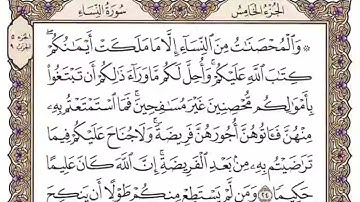 الجزء الخامس
سورة النساء
۞ وَٱلْمُحْصَنَٰتُ مِنَ ٱلنِّسَآءِ إِلَّا مَا مَلَكَتْ أَيْمَٰنُكُمْ ۖ
كِتَٰبَ ٱللَّهِ عَلَيْكُمْ ۚ وَأُحِلَّ لَكُم مَّا وَرَآءَ ذَٰلِكُمْ أَن تَبْتَغُوا۟
بِأَمْوَٰلِكُم مُّحْصِنِينَ غَيْرَ مُسَٰفِحِينَ ۚ فَمَا ٱسْتَمْتَعْتُم بِهِۦ
مِنْهُنَّ فَـَٔاتُوهُنَّ أُجُورَهُنَّ فَرِيضَةً ۚ وَلَا جُنَاحَ عَلَيْكُمْ فِيمَا
تَرَٰضَيْتُم بِهِۦ مِنۢ بَعْدِ ٱلْفَرِيضَةِ ۚ إِنَّ ٱللَّهَ كَانَ عَلِيمًا
حَكِيمًا ٢٤ وَمَن لَّمْ يَسْتَطِعْ مِنكُمْ طَوْلًا أَن يَنكِحَ
الجزء ٥
الحزب ٩